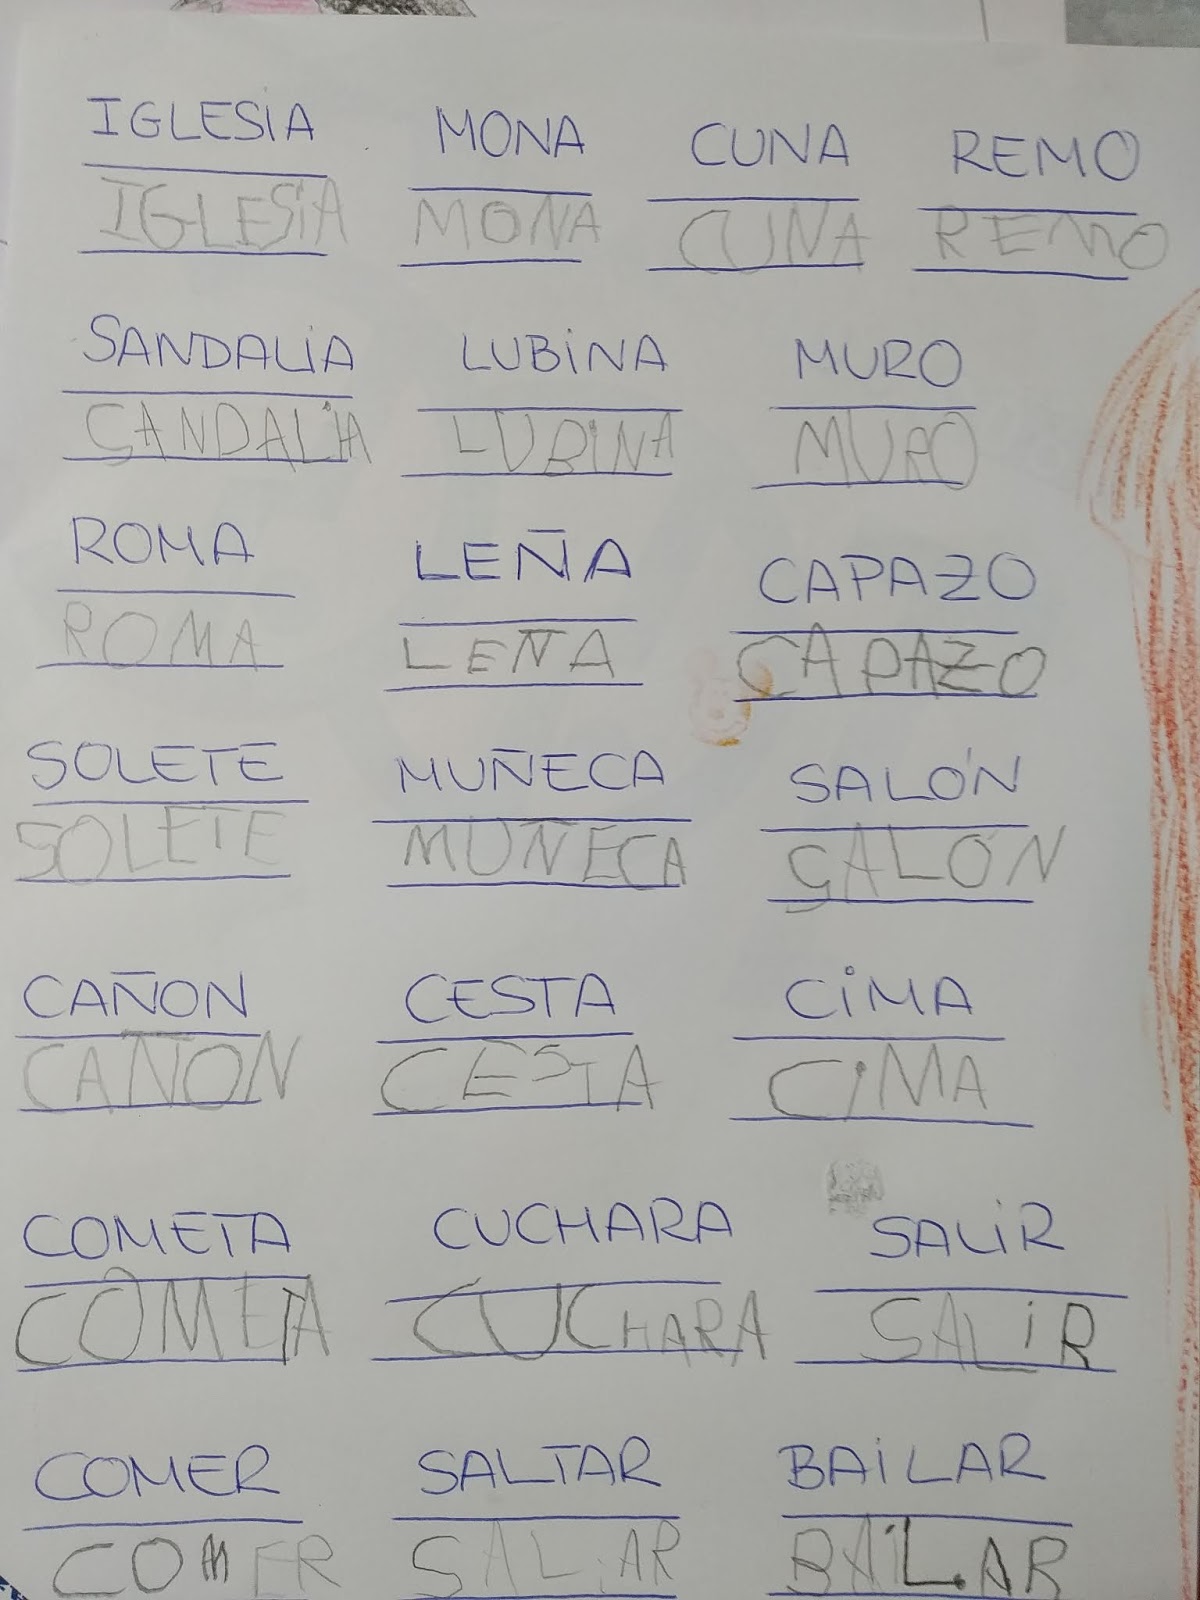 IGLESiA MONA CUNA REMO
IGLESiA MONA CUNA REMO
SANDALiA LUBiNA MURO
SANDALiA LUBiNA MURO
ROMA LEÑA CAPAZO
ROMA LEÑA CAPAZO
SOLETE MUÑECA SALÓN
SOLETE MUÑECA SALÓN
CAÑON CESTA CiMA
CAÑON CESTA CiMA
COMETA CUCHARA SALiR
COMETA CUCHARA SALiR
COMER SALTAR BAiLAR
COMER BAiLAR